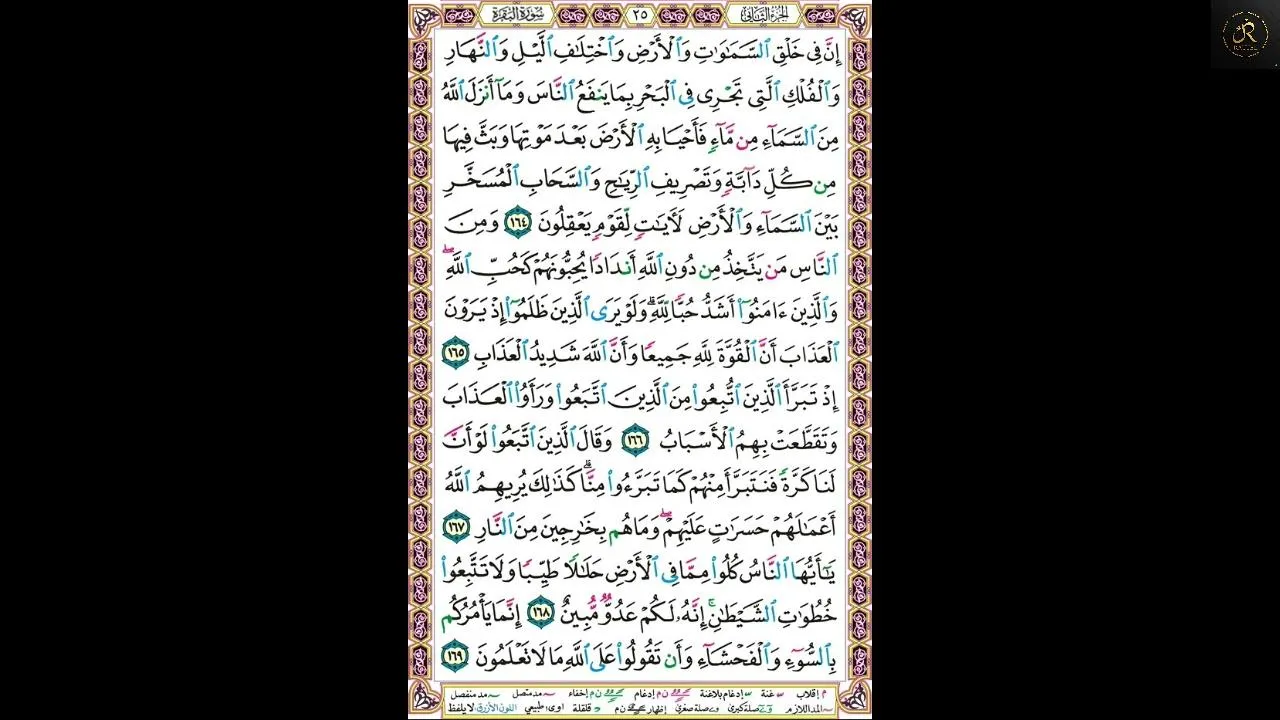 الجزء الثاني ٢٥ سورة البقرة
إِنَّ فِى خَلْقِ ٱلسَّمَـٰوَٰتِ وَٱلْأَرْضِ وَٱخْتِلَـٰفِ ٱلَّيْلِ وَٱلنَّهَارِ
وَٱلْفُلْكِ ٱلَّتِى تَجْرِى فِى ٱلْبَحْرِ بِمَا يَنفَعُ ٱلنَّاسَ وَمَآ أَنزَلَ ٱللَّهُ
مِنَ ٱلسَّمَآءِ مِن مَّآءٍ فَأَحْيَا بِهِ ٱلْأَرْضَ بَعْدَ مَوْتِهَا وَبَثَّ فِيهَا
مِن كُلِّ دَآبَّةٍ وَتَصْرِيفِ ٱلرِّيَـٰحِ وَٱلسَّحَابِ ٱلْمُسَخَّرِ
بَيْنَ ٱلسَّمَآءِ وَٱلْأَرْضِ لَـَٔايَـٰتٍ لِّقَوْمٍ يَعْقِلُونَ ١٦٤ وَمِنَ
ٱلنَّاسِ مَن يَتَّخِذُ مِن دُونِ ٱللَّهِ أَندَادًا يُحِبُّونَهُمْ كَحُبِّ ٱللَّهِ ۖ
وَٱلَّذِينَ ءَامَنُوٓا۟ أَشَدُّ حُبًّا لِّلَّهِ ۗ وَلَوْ يَرَى ٱلَّذِينَ ظَلَمُوٓا۟ إِذْ يَرَوْنَ
ٱلْعَذَابَ أَنَّ ٱلْقُوَّةَ لِلَّهِ جَمِيعًا وَأَنَّ ٱللَّهَ شَدِيدُ ٱلْعَذَابِ ١٦٥
إِذْ تَبَرَّأَ ٱلَّذِينَ ٱتُّبِعُوا۟ مِنَ ٱلَّذِينَ ٱتَّبَعُوا۟ وَرَأَوُا۟ ٱلْعَذَابَ
وَتَقَطَّعَتْ بِهِمُ ٱلْأَسْبَابُ ١٦٦ وَقَالَ ٱلَّذِينَ ٱتَّبَعُوا۟ لَوْ أَنَّ
لَنَا كَرَّةً فَنَتَبَرَّأَ مِنْهُمْ كَمَا تَبَرَّءُوا۟ مِنَّا ۗ كَذَٰلِكَ يُرِيهِمُ ٱللَّهُ
أَعْمَـٰلَهُمْ حَسَرَٰتٍ عَلَيْهِمْ ۖ وَمَا هُم بِخَـٰرِجِينَ مِنَ ٱلنَّارِ ١٦٧
يَـٰٓأَيُّهَا ٱلنَّاسُ كُلُوا۟ مِمَّا فِى ٱلْأَرْضِ حَلَـٰلًا طَيِّبًا وَلَا تَتَّبِعُوا۟
خُطُوَٰتِ ٱلشَّيْطَـٰنِ ۚ إِنَّهُۥ لَكُمْ عَدُوٌّ مُّبِينٌ ١٦٨ إِنَّمَا يَأْمُرُكُم
بِٱلسُّوٓءِ وَٱلْفَحْشَآءِ وَأَن تَقُولُوا۟ عَلَى ٱللَّهِ مَا لَا تَعْلَمُونَ ١٦٩
م إقلاب غنة إدغام بلاغنة ن م إدغام ن م إخفاء مد متصل مد منفصل
المد اللازم صلة كبرى صلة صغرى إظهار ن م قلقلة اوى طبيعي اللون الأزرق لا يلفظ